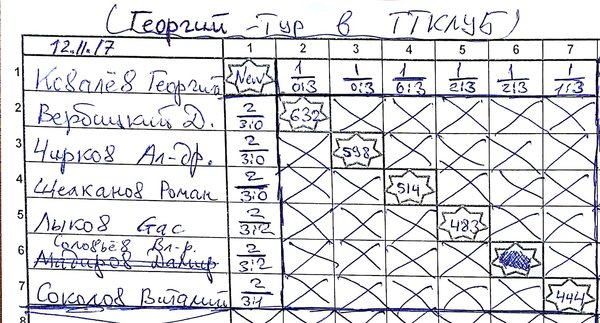 (Георгий - Тур в ТТКЛУБ)
12.11.17 1 2 3 4 5 6 7
1 Ковалёв Георгий New 1/0:3 1/0:3 1/0:3 1/2:3 1/2:3 1/1:3
2 Вербицкий Д. 2/3:0 632
3 Чирков Ал-др. 2/3:0 598
4 Щелканов Роман 2/3:0 514
5 Лыков Стас 2/3:2 483
Соловьёв Вл-р.
6 2/3:2
7 Соколов Виталий 2/3:1 444
8